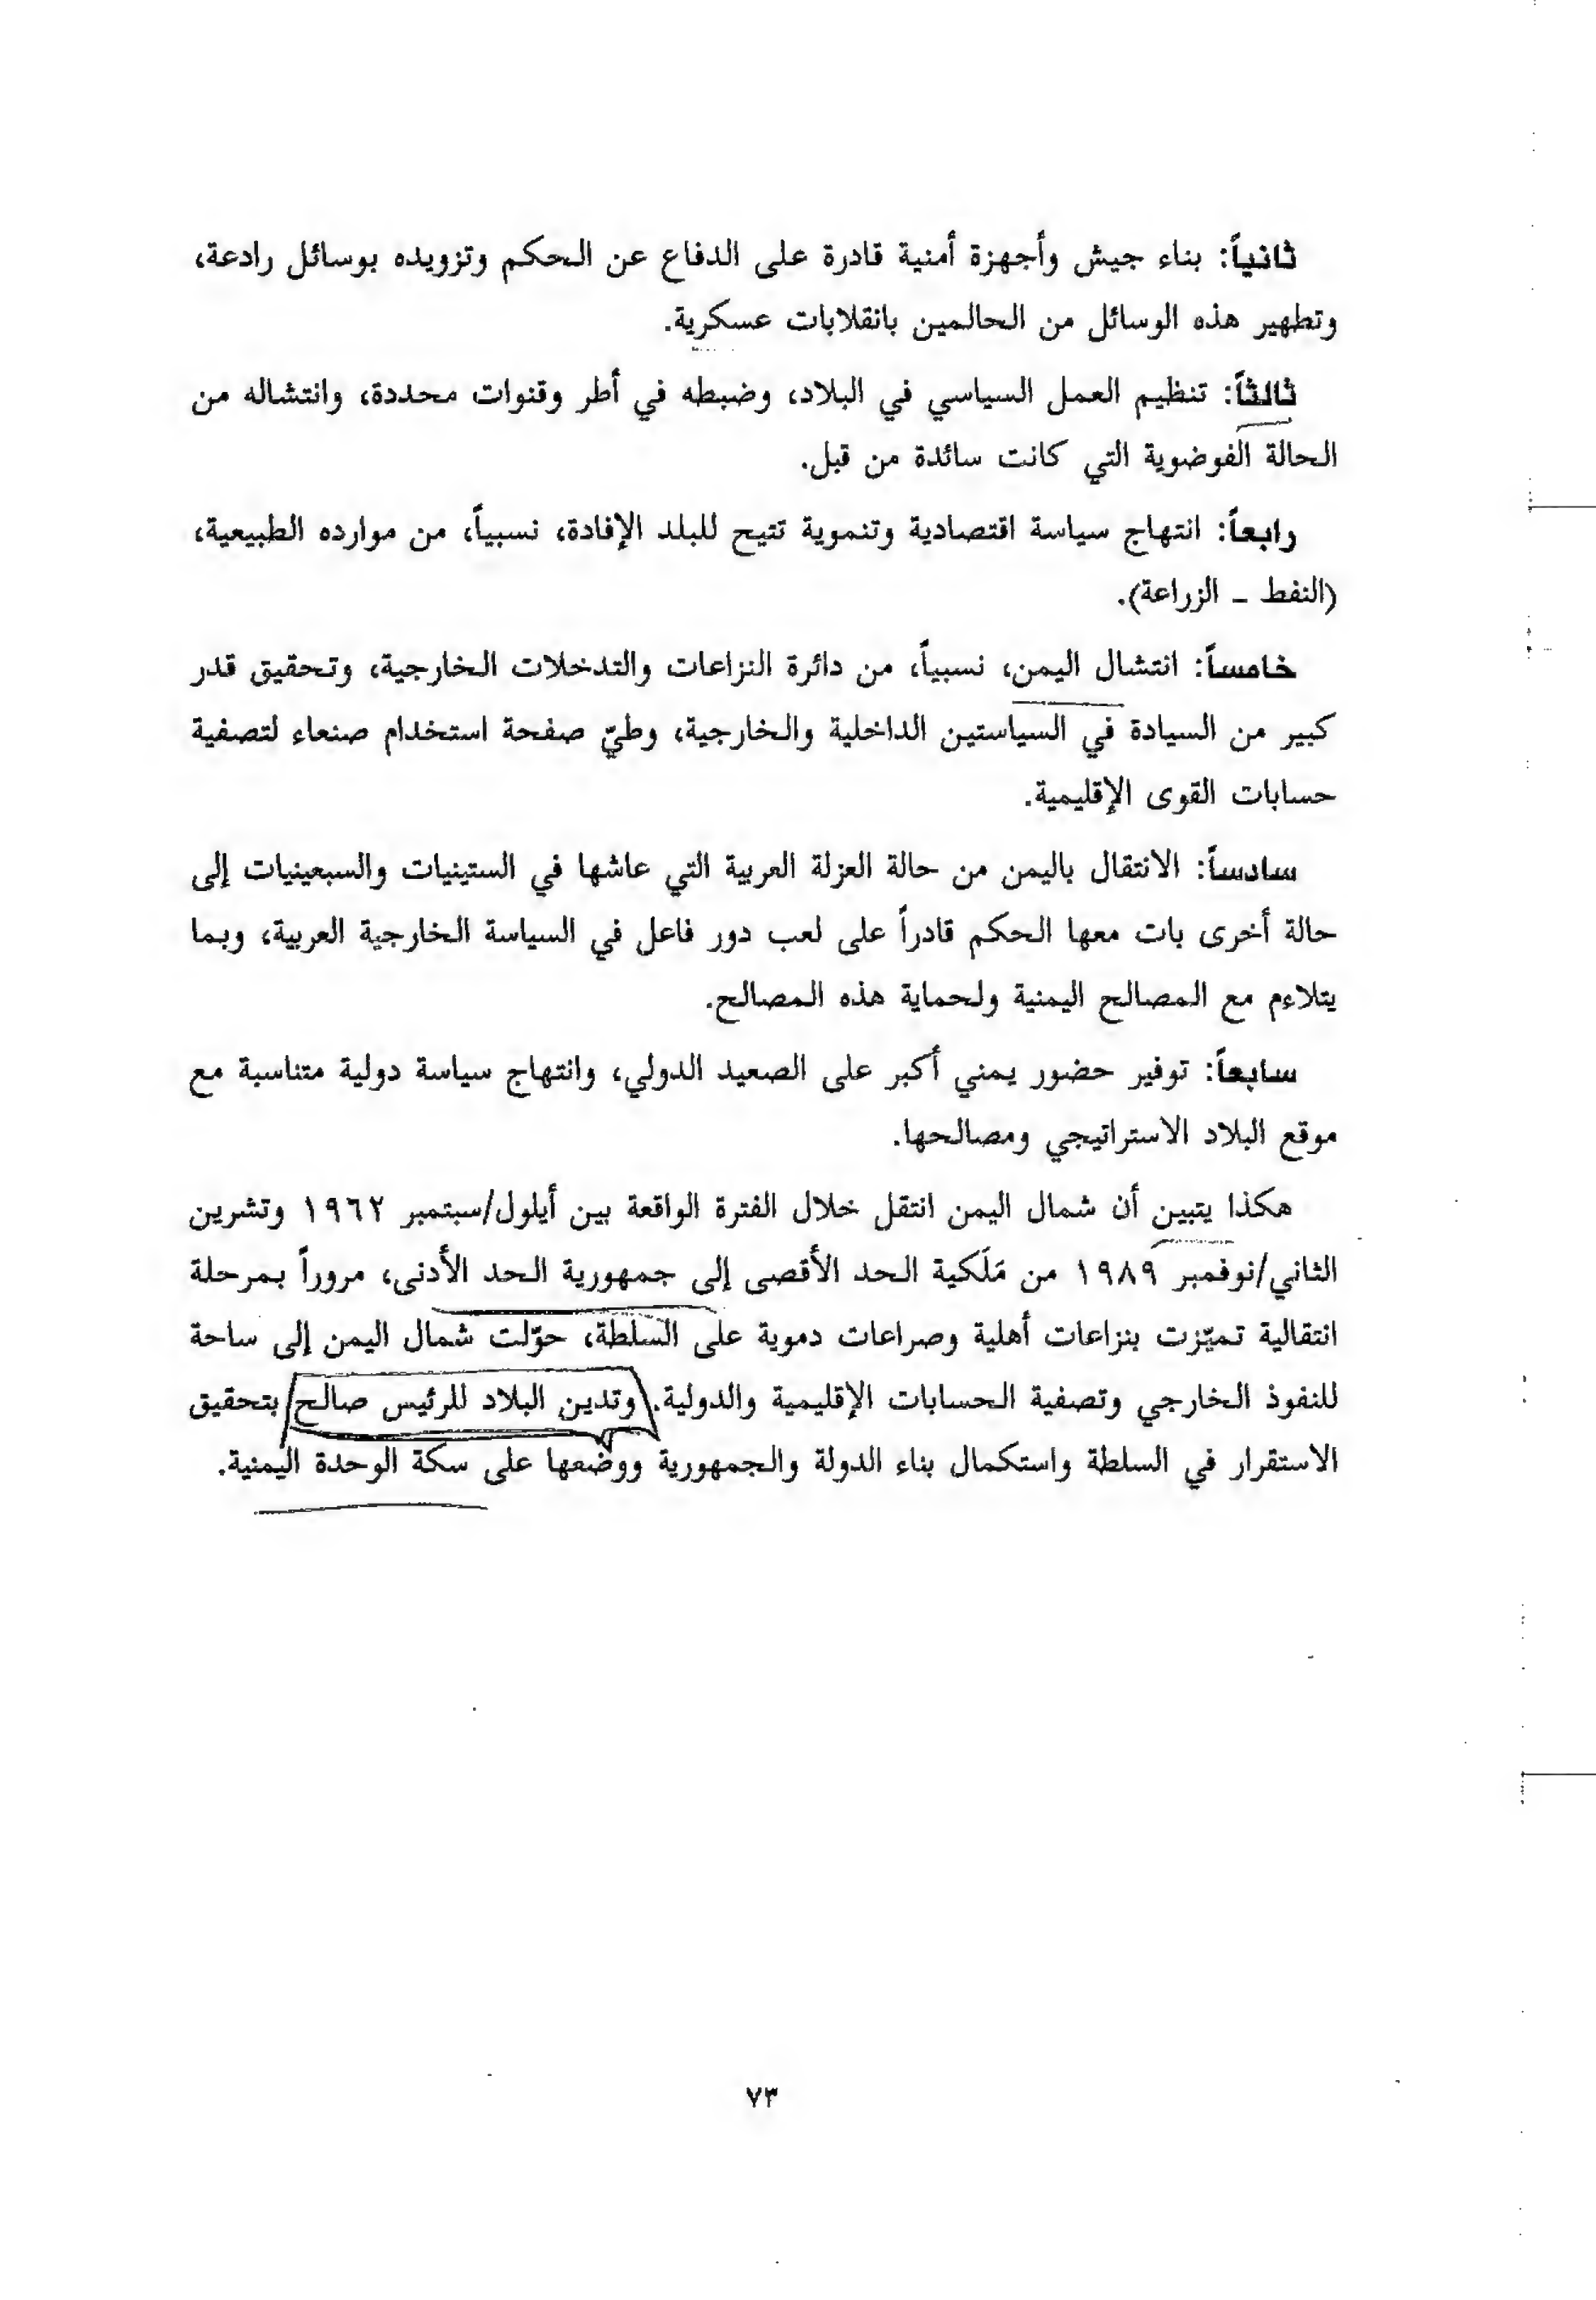 ثانياً: بناء جيش وأجهزة أمنية قادرة على الدفاع عن الحكم وتزويده بوسائل رادعة،
وتطهير هذه الوسائل من الحالمين بانقلابات عسكرية.
ثالثاً: تنظيم العمل السياسي في البلاد، وضبطه في أطر وقنوات محددة، وانتشاله من
الحالة الفوضوية التي كانت سائدة من قبل.
رابعاً: انتهاج سياسة اقتصادية وتنموية تتيح للبلد الإفادة، نسبياً، من موارده الطبيعية،
(النفط - الزراعة).
خامساً: انتشال اليمن، نسبياً، من دائرة النزاعات والتدخلات الخارجية، وتحقيق قدر
كبير من السيادة في السياستين الداخلية والخارجية، وطيّ صفحة استخدام صنعاء لتصفية
حسابات القوى الإقليمية.
سادساً: الانتقال باليمن من حالة العزلة العربية التي عاشها في الستينيات والسبعينيات إلى
حالة أخرى بات معها الحكم قادراً على لعب دور فاعل في السياسة الخارجية العربية، وبما
يتلاءم مع المصالح اليمنية ولحماية هذه المصالح.
سابعاً: توفير حضور يمني أكبر على الصعيد الدولي، وانتهاج سياسة دولية متناسبة مع
موقع البلاد الاستراتيجي ومصالحها.
هكذا يتبين أن شمال اليمن انتقل خلال الفترة الواقعة بين أيلول/سبتمبر ١٩٦٢ وتشرين
الثاني/نوفمبر ١٩٨٩ من مَلَكية الحد الأقصى إلى جمهورية الحد الأدنى، مروراً بمرحلة
انتقالية تميّزت بنزاعات أهلية وصراعات دموية على السلطة، حوّلت شمال اليمن إلى ساحة
للنفوذ الخارجي وتصفية الحسابات الإقليمية والدولية. وتدين البلاد للرئيس صالح بتحقيق
الاستقرار في السلطة واستكمال بناء الدولة والجمهورية ووضعها على سكة الوحدة اليمنية.
٧٣